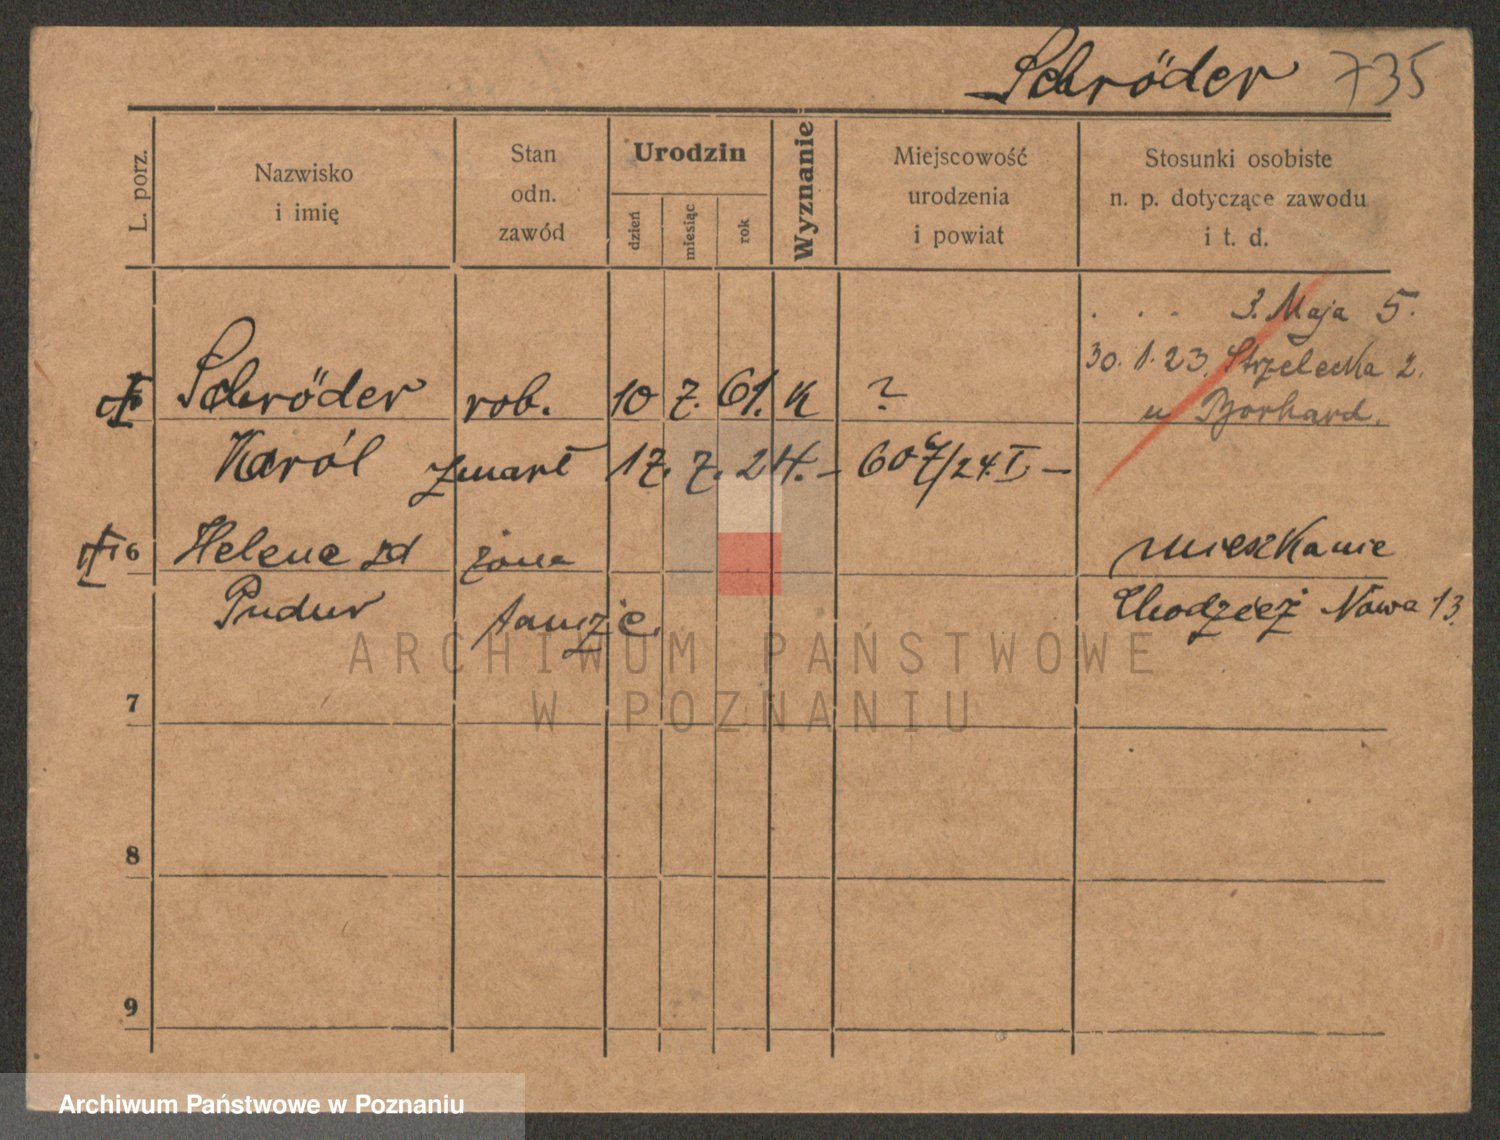 Schröder 735
L. porz.
Nazwisko
i imię
Stan
odn.
zawód
Urodzin
dzień
miesiąc
rok
Wyznanie
Miejscowość
urodzenia
i powiat
Stosunki osobiste
n. p. dotyczące zawodu
i t. d.
. . . 3. Maja 5.
30. 1. 23. Strzelecka 2.
u Borhard.
Schröder rob. 10 7. 61. K ?
Karól zmarł 17. 7. 24. – 607/24. I –
6 Helene zd żona mieszkanie
Chodzież Nowa 13.
ARCHIWUM PAŃSTWOWE
W POZNANIU
7
8
9
Archiwum Państwowe w Poznaniu